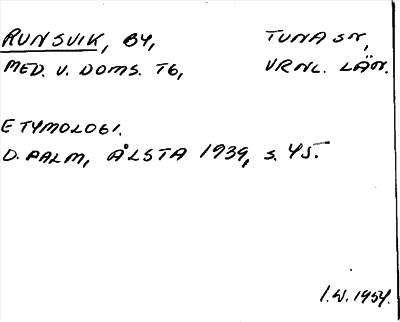 RUNSVIK, BY, TUNA SN,
MED. V. DOMS. TG, VRNL. LÄN.
ETYMOLOGI.
D. PALM, ÅLSTA 1939, S. 45.
I.W. 1954.